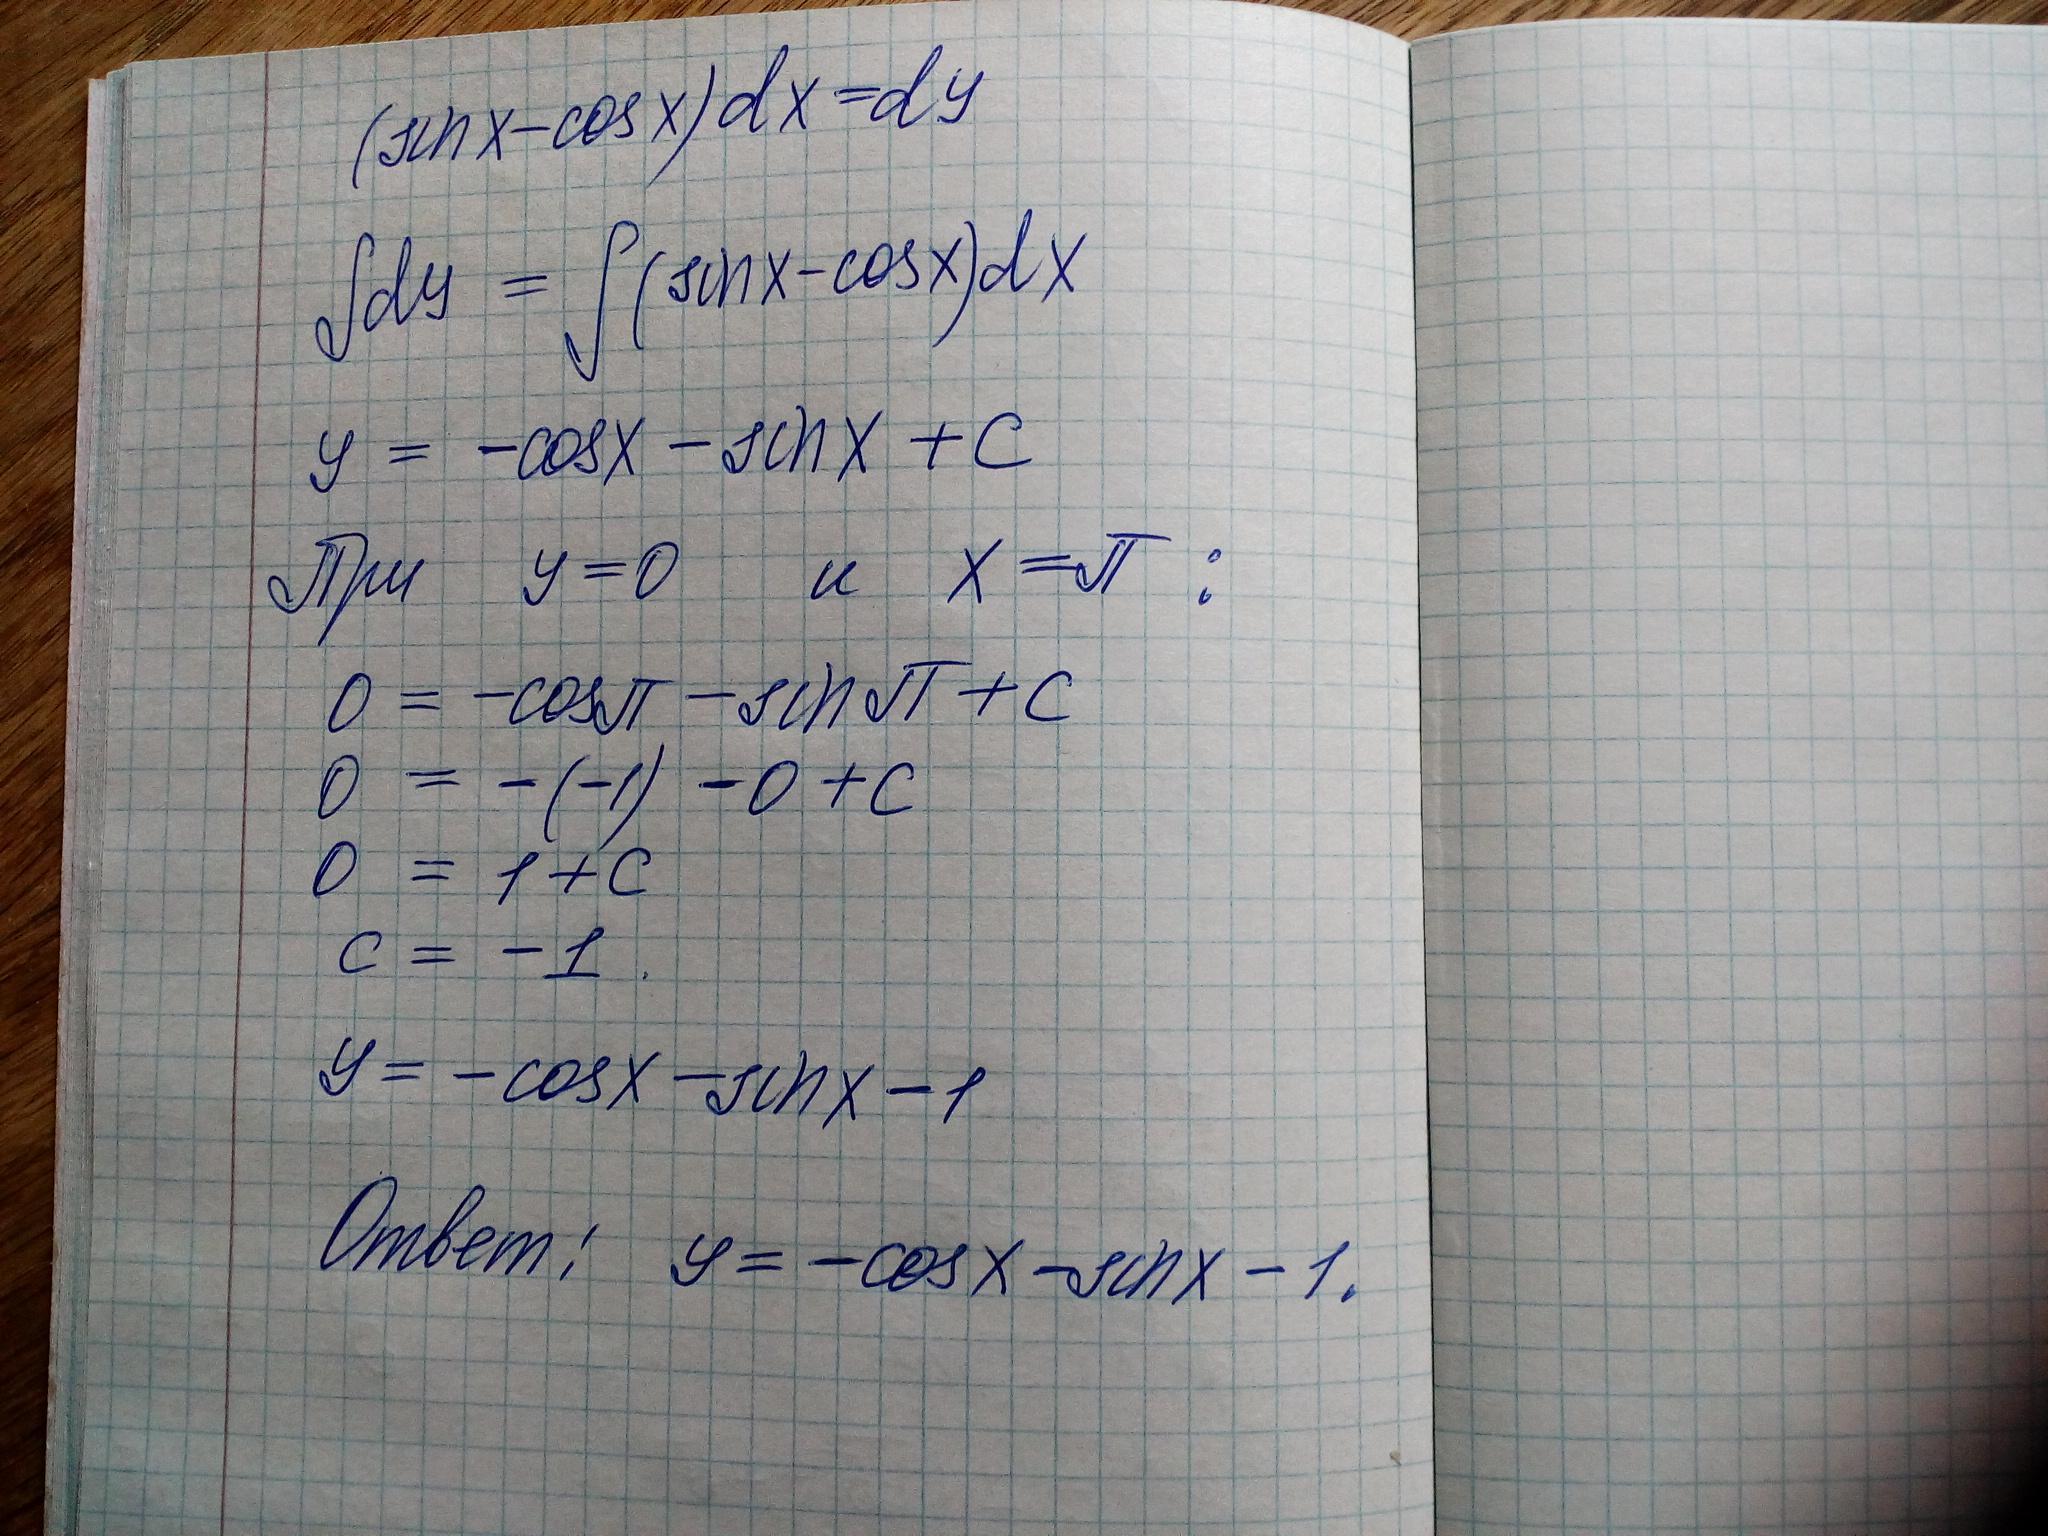 (sin x - cos x) dx = dy
∫dy = ∫(sin x - cos x) dx
y = -cos x - sin x + C
При y = 0 и x = π :
0 = -cos π - sin π + C
0 = -(-1) - 0 + C
0 = 1 + C
C = -1.
y = -cos x - sin x - 1
Ответ: y = -cos x - sin x - 1.